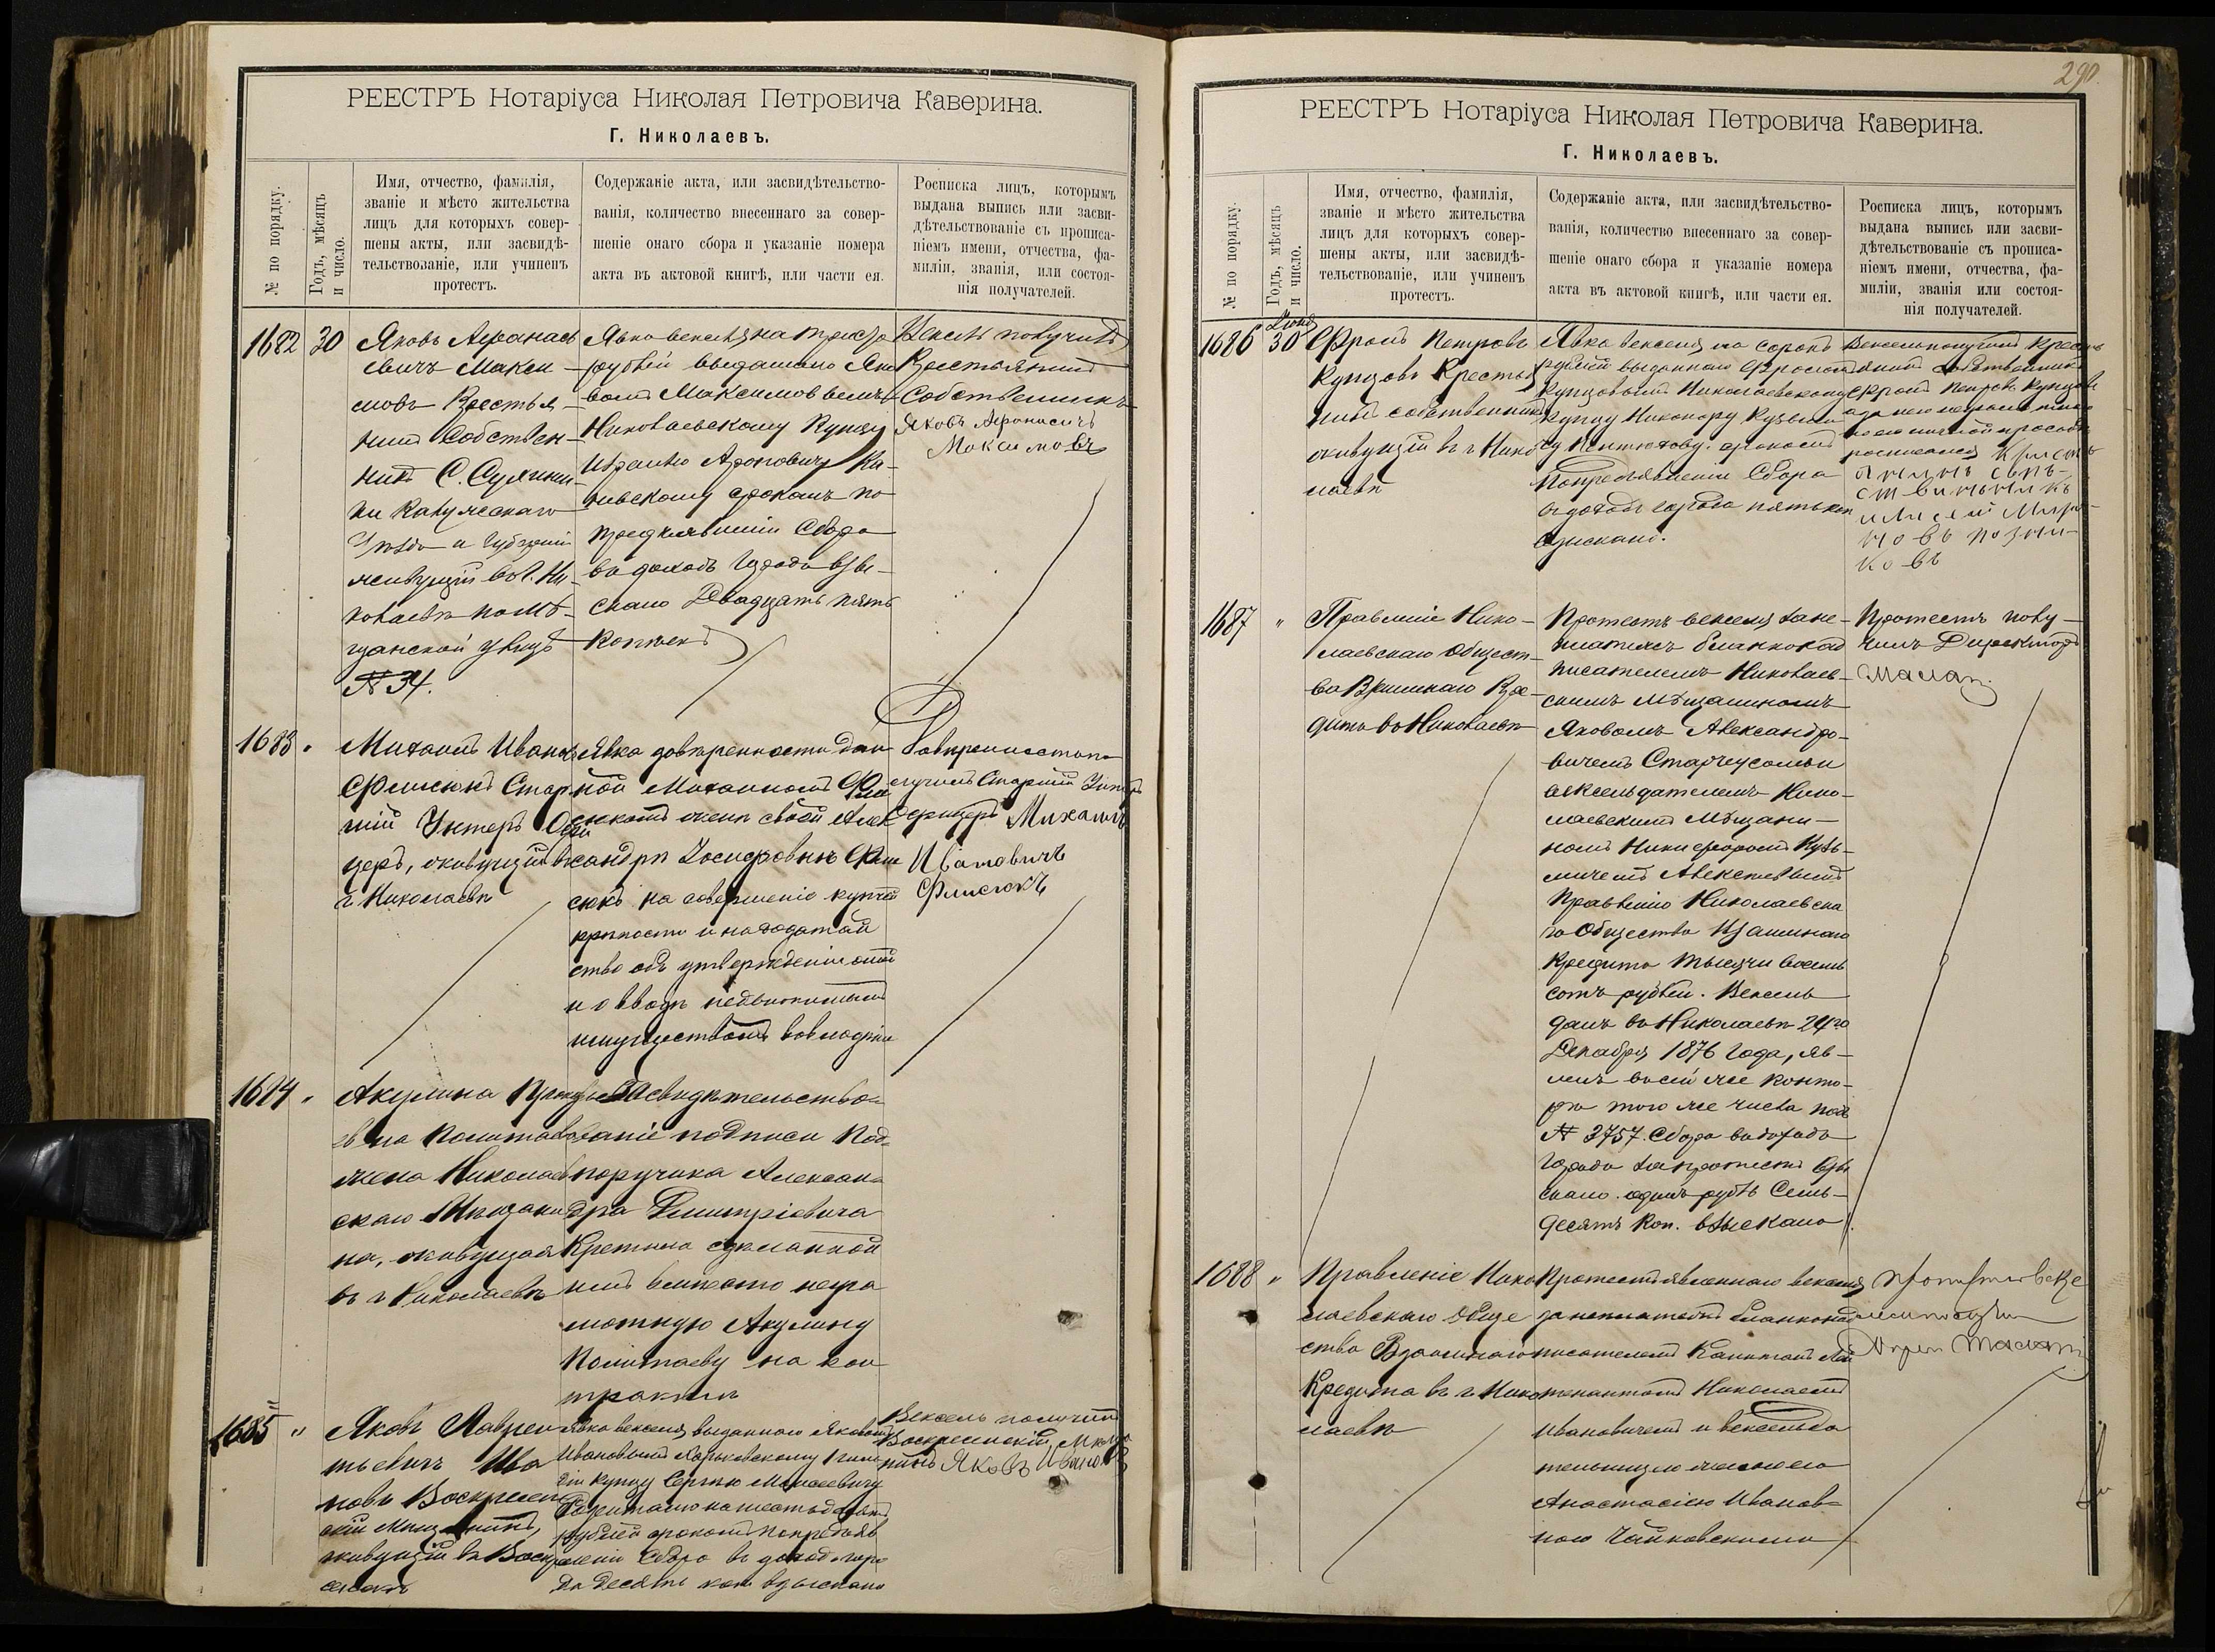 РЕЕСТРЪ Нотаріуса Николая Петровича Каверина.
Г. Николаевъ.
№ по порядку.
Годъ, мѣсяцъ
и число.
Имя, отчество, фамилія,
званіе и мѣсто жительства
лицъ для которыхъ совер-
шены акты, или засвидѣ-
тельствованіе, или учиненъ
протестъ.
Содержаніе акта, или засвидѣтельство-
ванія, количество внесеннаго за совер-
шеніе онаго сбора и указаніе номера
акта въ актовой книгѣ, или части ея.
Росписка лицъ, которымъ
выдана выпись или засви-
дѣтельствованіе съ прописа-
ніемъ имени, отчества, фа-
миліи, званія, или состоя-
нія получателей.
1682
30
Яковъ Афанась
евичъ Макси-
мовъ Крестья-
нинъ Собствен-
никъ С.
уѣзда и Губерніи
живущій въ г. Ни-
колаевѣ по мѣ-
щанской улицѣ
№ 34.
Явка векселя на триста
рублей выданнаго Яко
вомъ Максимовымъ
Николаевскому Купцу
Израилю Ароновичу Ка-
невскому срокомъ по
предъявленіи Сбора
въ доходъ Города взы-
скано Двадцать пять
копѣекъ
Вексель получилъ
Крестьянинъ
Собственникъ
Яковъ Афонасичъ
Максимовъ
1683
Михаилъ Иванов
Флисюкъ Стар-
шій Унтеръ Офи
церъ, живущій въ
г. Николаевѣ
Явка довѣренности дан
ной Михаиломъ Фли
сюкомъ женѣ своей Алек
сандрѣ Іосифовнѣ Фли
сюкъ на совершеніе купчей
крѣпости и ходатай
ство объ утвержденіи оной
и о вводѣ недвижимымъ
имуществомъ во владѣніе
Довѣренность по
лучилъ Старшій Унтеръ
Офицеръ Михаилъ
Ивановичъ
Флисюкъ
1684
Акулина
жена Николаев
скаго Мѣщани
на, живущая
въ г. Николаевѣ
Засвидѣтельство-
ваніе подписи Под-
поручика Алексан-
дра Дмитріевича
Кретина сдѣланной
имъ вмѣсто негра
мотную Акулину
Политаеву на кон
трактѣ
1685
Яковъ Лаврен
тьевичъ Ива
новъ Воскресен
скій Мѣщанинъ,
живущій въ Воскре
сенскѣ
Явка векселя выданнаго Яковомъ
Ивановымъ Харьковскому 1 гиль
діи купцу Сергѣю
на шестьдесятъ
рублей срокомъ по предъяв
леніи Сбора въ доходъ горо
да десять коп взыскано
Вексель получилъ
Воскресенскій Мѣща
нинъ Яковъ Ивановъ
290.
РЕЕСТРЪ Нотаріуса Николая Петровича Каверина.
Г. Николаевъ.
№ по порядку.
Годъ, мѣсяцъ
и число.
Имя, отчество, фамилія,
званіе и мѣсто жительства
лицъ для которыхъ совер-
шены акты, или засвидѣ-
тельствованіе, или учиненъ
протестъ.
Содержаніе акта, или засвидѣтельство-
ванія, количество внесеннаго за совер-
шеніе онаго сбора и указаніе номера
акта въ актовой книгѣ, или части ея.
Росписка лицъ, которымъ
выдана выпись или засви-
дѣтельствованіе съ прописа-
ніемъ имени, отчества, фа-
миліи, званія или состоя-
нія получателей.
1686
Іюня
30
Фролъ Петровъ
Купцовъ Крестья
нинъ собственникъ
живущій въ г. Нико
лаевѣ
Явка векселя на сорокъ
рублей выданнаго Фроломъ
Купцовымъ Николаевскому
купцу Никонору Кузьми
чу срокомъ
по предъявленіи Сбора
въ доходъ города пять коп
взыскано.
Вексель получилъ Кресть
янинъ собственникъ
Фролъ Петровъ Купцовъ
а за него неграмотнаго
по его личной просьбѣ
росписался Кресть
янинъ
1687
"
Правленіе Нико-
лаевскаго Общест-
ва Взаимнаго Кре-
дита въ Николаевѣ
Протестъ векселя за не-
платежъ бланкопод
писателемъ Николаев-
скимъ Мѣщаниномъ
Яковомъ Александро-
вичемъ
векселедателемъ Нико-
лаевскимъ Мѣщани-
номъ Никифоромъ Кузь-
мичемъ Алексѣевымъ
Правленію Николаевска
го Общества Взаимнаго
Кредита тысячи восемь
сотъ рублей. Вексель
данъ въ Николаевѣ 24го
Декабря 1876 года, яв-
ленъ въ сей же конто-
рѣ того же числа подъ
№ 3757. Сбора въ доходъ
Города за протестъ взы
скано одинъ рубль Семь-
десятъ Коп. взыскано
Протестъ полу-
чилъ Директоръ
1688
"
Правленіе Нико
лаевскаго Обще
ства Взаимнаго
Кредита въ г. Нико
лаевѣ
Протестъ явленнаго векселя
за неплатежъ бланконад
писателемъ Капитанъ Лей
тенантомъ Николаемъ
Ивановичемъ и векселеда
тельницею женою его
Анастасіею Иванов-
ною Чайковскими